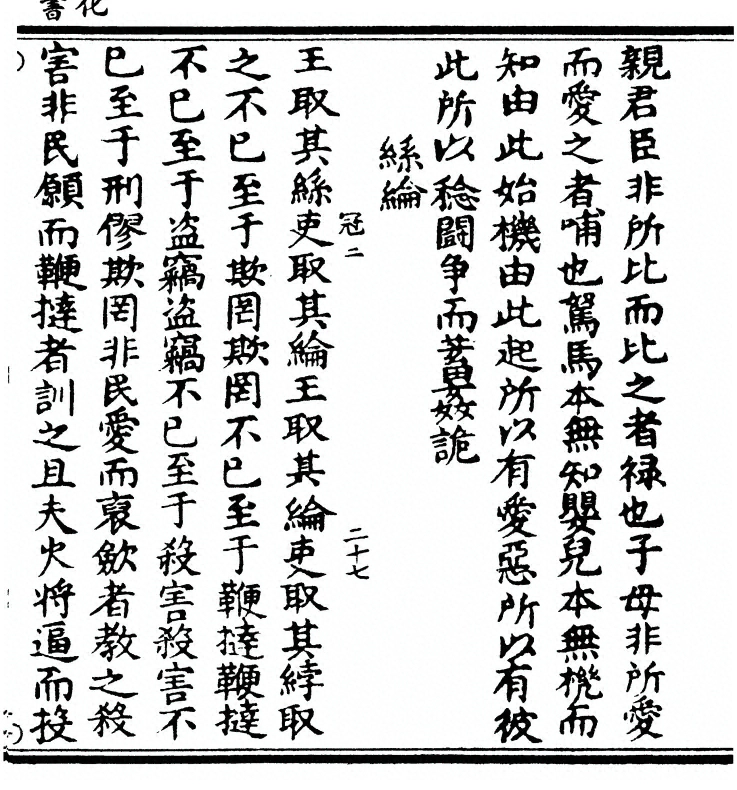 化書
親君臣非所比而比之者禄也子母非所愛
而愛之者哺也駑馬本無知嬰兒本無機而
知由此始機由此起所以有愛惡所以有彼
此所以稔鬪争而蓄姦詭
絲綸
冠二
二十七
王取其絲吏取其綸王取其綸吏取其綍取
之不已至于欺罔欺罔不已至于鞭撻鞭撻
不已至于盗竊盗竊不已至于殺害殺害不
已至于刑僇欺罔非民愛而裒斂者教之殺
害非民願而鞭撻者訓之且夫火将逼而投